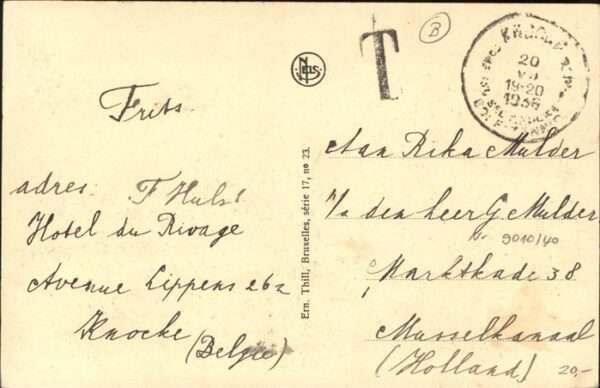 Frits
adres: F Hulst
Hotel du Rivage
Avenue Lippens 262
Knocke
(Belgie)
Ern. Thill, Bruxelles, série 17, no 23.
NELS
T
B
20
19-20
1936
Aan Rika Mulder
p/a den heer G Mulder
Nr. 9010/40
Marktkade 38
Musselkanaal
(Holland)
20,-